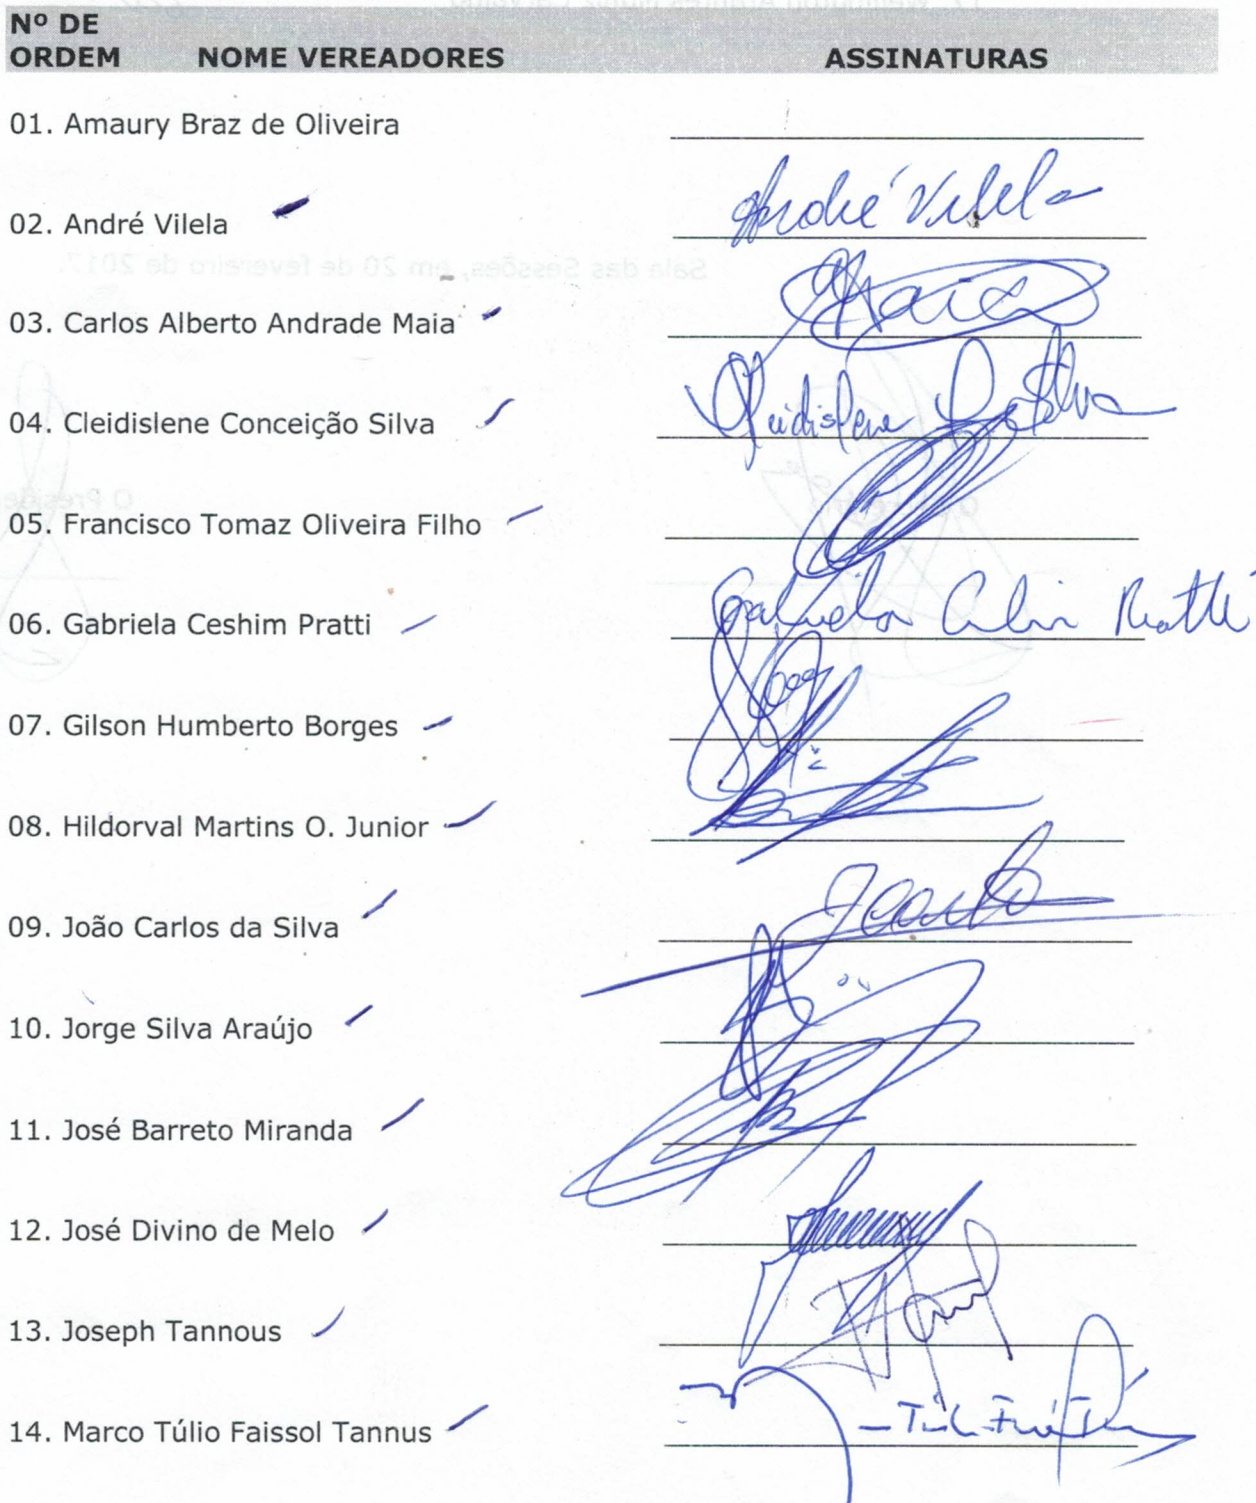 Nº DE
ORDEM NOME VEREADORES ASSINATURAS
01. Amaury Braz de Oliveira
02. André Vilela André Vilela
03. Carlos Alberto Andrade Maia Maia
04. Cleidislene Conceição Silva Cleidislene Silva
05. Francisco Tomaz Oliveira Filho
06. Gabriela Ceshim Pratti Gabriela Ceshim Pratti
07. Gilson Humberto Borges
08. Hildorval Martins O. Junior
09. João Carlos da Silva
10. Jorge Silva Araújo
11. José Barreto Miranda
12. José Divino de Melo
13. Joseph Tannous
14. Marco Túlio Faissol Tannus